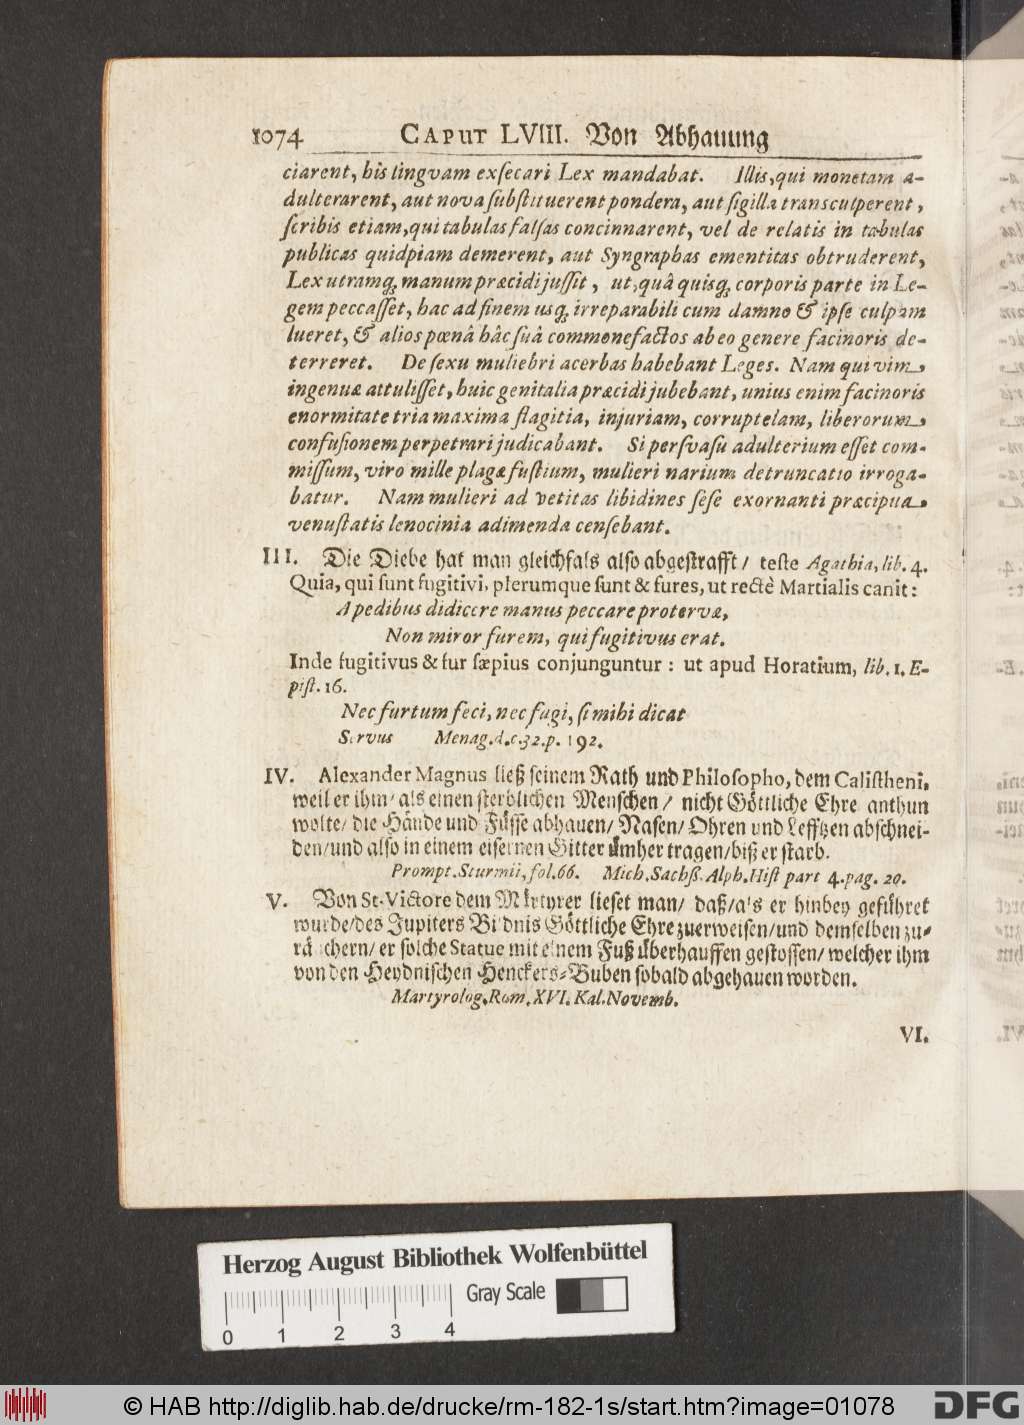 1074 CAPUT LVIII. Von Abhauung
ciarent, his lingvam exſecari Lex mandabat. Illis, qui monetam a-
dulterarent, aut nova ſubſtituerent pondera, aut ſigilla transculperent,
ſcribis etiam, qui tabulas falſas concinnarent, vel de relatis in tabulas
publicas quidpiam demerent, aut Syngraphas ementitas obtruderent,
Lex utramq; manum præcidi juſſit, ut, quâ quisq; corporis parte in Le-
gem peccaſſet, hac ad finem usq; irreparabili cum damno & ipſe culpam
lueret, & alios pœnâ hâc ſuâ commonefactos ab eo genere facinoris de-
terreret. De ſexu muliebri acerbas habebant Leges. Nam qui vim
ingenuæ attuliſſet, huic genitalia præcidi jubebant, unius enim facinoris
enormitate tria maxima flagitia, injuriam, corruptelam, liberorum
confuſionem perpetrari judicabant. Si perſvaſu adulterium eſſet com-
miſſum, viro mille plagæ fuſtium, mulieri narium detruncatio irroga-
batur. Nam mulieri ad vetitas libidines ſeſe exornanti præcipua
venuſtatis lenocinia adimenda cenſebant.
III. Die Diebe hat man gleichfals alſo abgeſtrafft/ teſte Agathia, lib. 4.
Quia, qui ſunt fugitivi, plerumque ſunt & fures, ut rectè Martialis canit:
A pedibus didicere manus peccare protervæ,
Non miror furem, qui fugitivus erat.
Inde fugitivus & fur ſæpius conjunguntur: ut apud Horatium, lib. 1. E-
piſt. 16.
Nec furtum feci, nec fugi, ſi mihi dicat
Servus Menag. d. c. 32. p. 192.
IV. Alexander Magnus ließ ſeinem Rath und Philoſopho, dem Caliſtheni,
weil er ihm/ als einen ſterblichen Menſchen/ nicht Göttliche Ehre anthun
wolte/ die Hände und Füſſe abhauen/ Naſen/ Ohren und Leffzen abſchnei-
den/ und alſo in einem eiſernen Gitter ümher tragen/ biß er ſtarb.
Prompt. Sturmii, fol. 66. Mich. Sachß. Alph. Hiſt part 4. pag. 20.
V. Von St. Victore dem Märtyrer lieſet man/ daß/ als er hinbey geführet
wurde/ des Jupiters Bildnis Göttliche Ehre zuerweiſen/ und demſelben zu-
räuchern/ er ſolche Statue mit einem Fuß überhauffen geſtoſſen/ welcher ihm
von den Heydniſchen Henckers-Buben ſobald abgehauen worden.
Martyrolog. Rom. XVI. Kal. Novemb.
VI.
Herzog August Bibliothek Wolfenbüttel
Gray Scale
0 1 2 3 4
© HAB http://diglib.hab.de/drucke/rm-182-1s/start.htm?image=01078
DFG